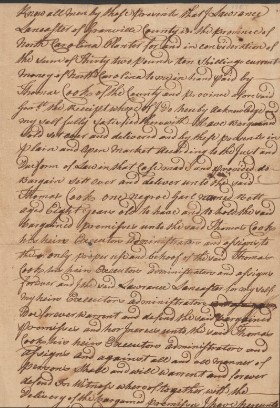 Know all men by these presents that I Lawrance
Lancaster of Granville County in the province of
North Carolina Planter for and in consideration of
the Sum of Thirty two pound ten Shillings current
money of North Carolina to me in hand paid by
Thomas Cook of the County and province aforesaid
the Receipt whereof I do hereby acknowledge and
my self fully satisfied have Bargained
Sold set over and delivered and by these presents in
plain and open Market according to the just and
Due form of Law in that Case made and provided do
Bargain sell over and deliver unto the said
Thomas Cook one negroe garl name
aged Eight years old to have and to hold the said
Bargained premisses unto the said Thomas Cook
his heirs Executors administrators and assigns to
the only proper use and behoof of the said Thomas
Cook his heirs Executors administrators and assigns
forever and I the said Lawrance Lancaster for my self
my heirs Executors administrators
for ever warrant and defend the said Bargained
premisses and her Increase unto the said Thomas
Cook his heirs Executors administrators and
assigns and against all and all manner of
persons shall and will warrant and forever
defend In Witness whereof together with the
delivery of the bargained premisses I have hereunto